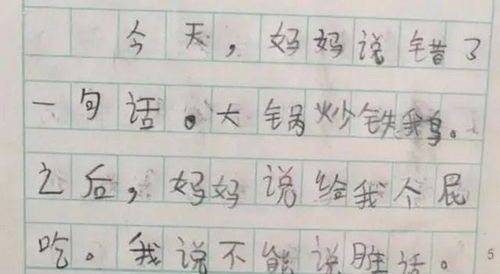 今天，妈妈说错了
一句话。大锅炒铁鹅。
之后，妈妈说给我个屁
吃。我说不能说胜话。
5